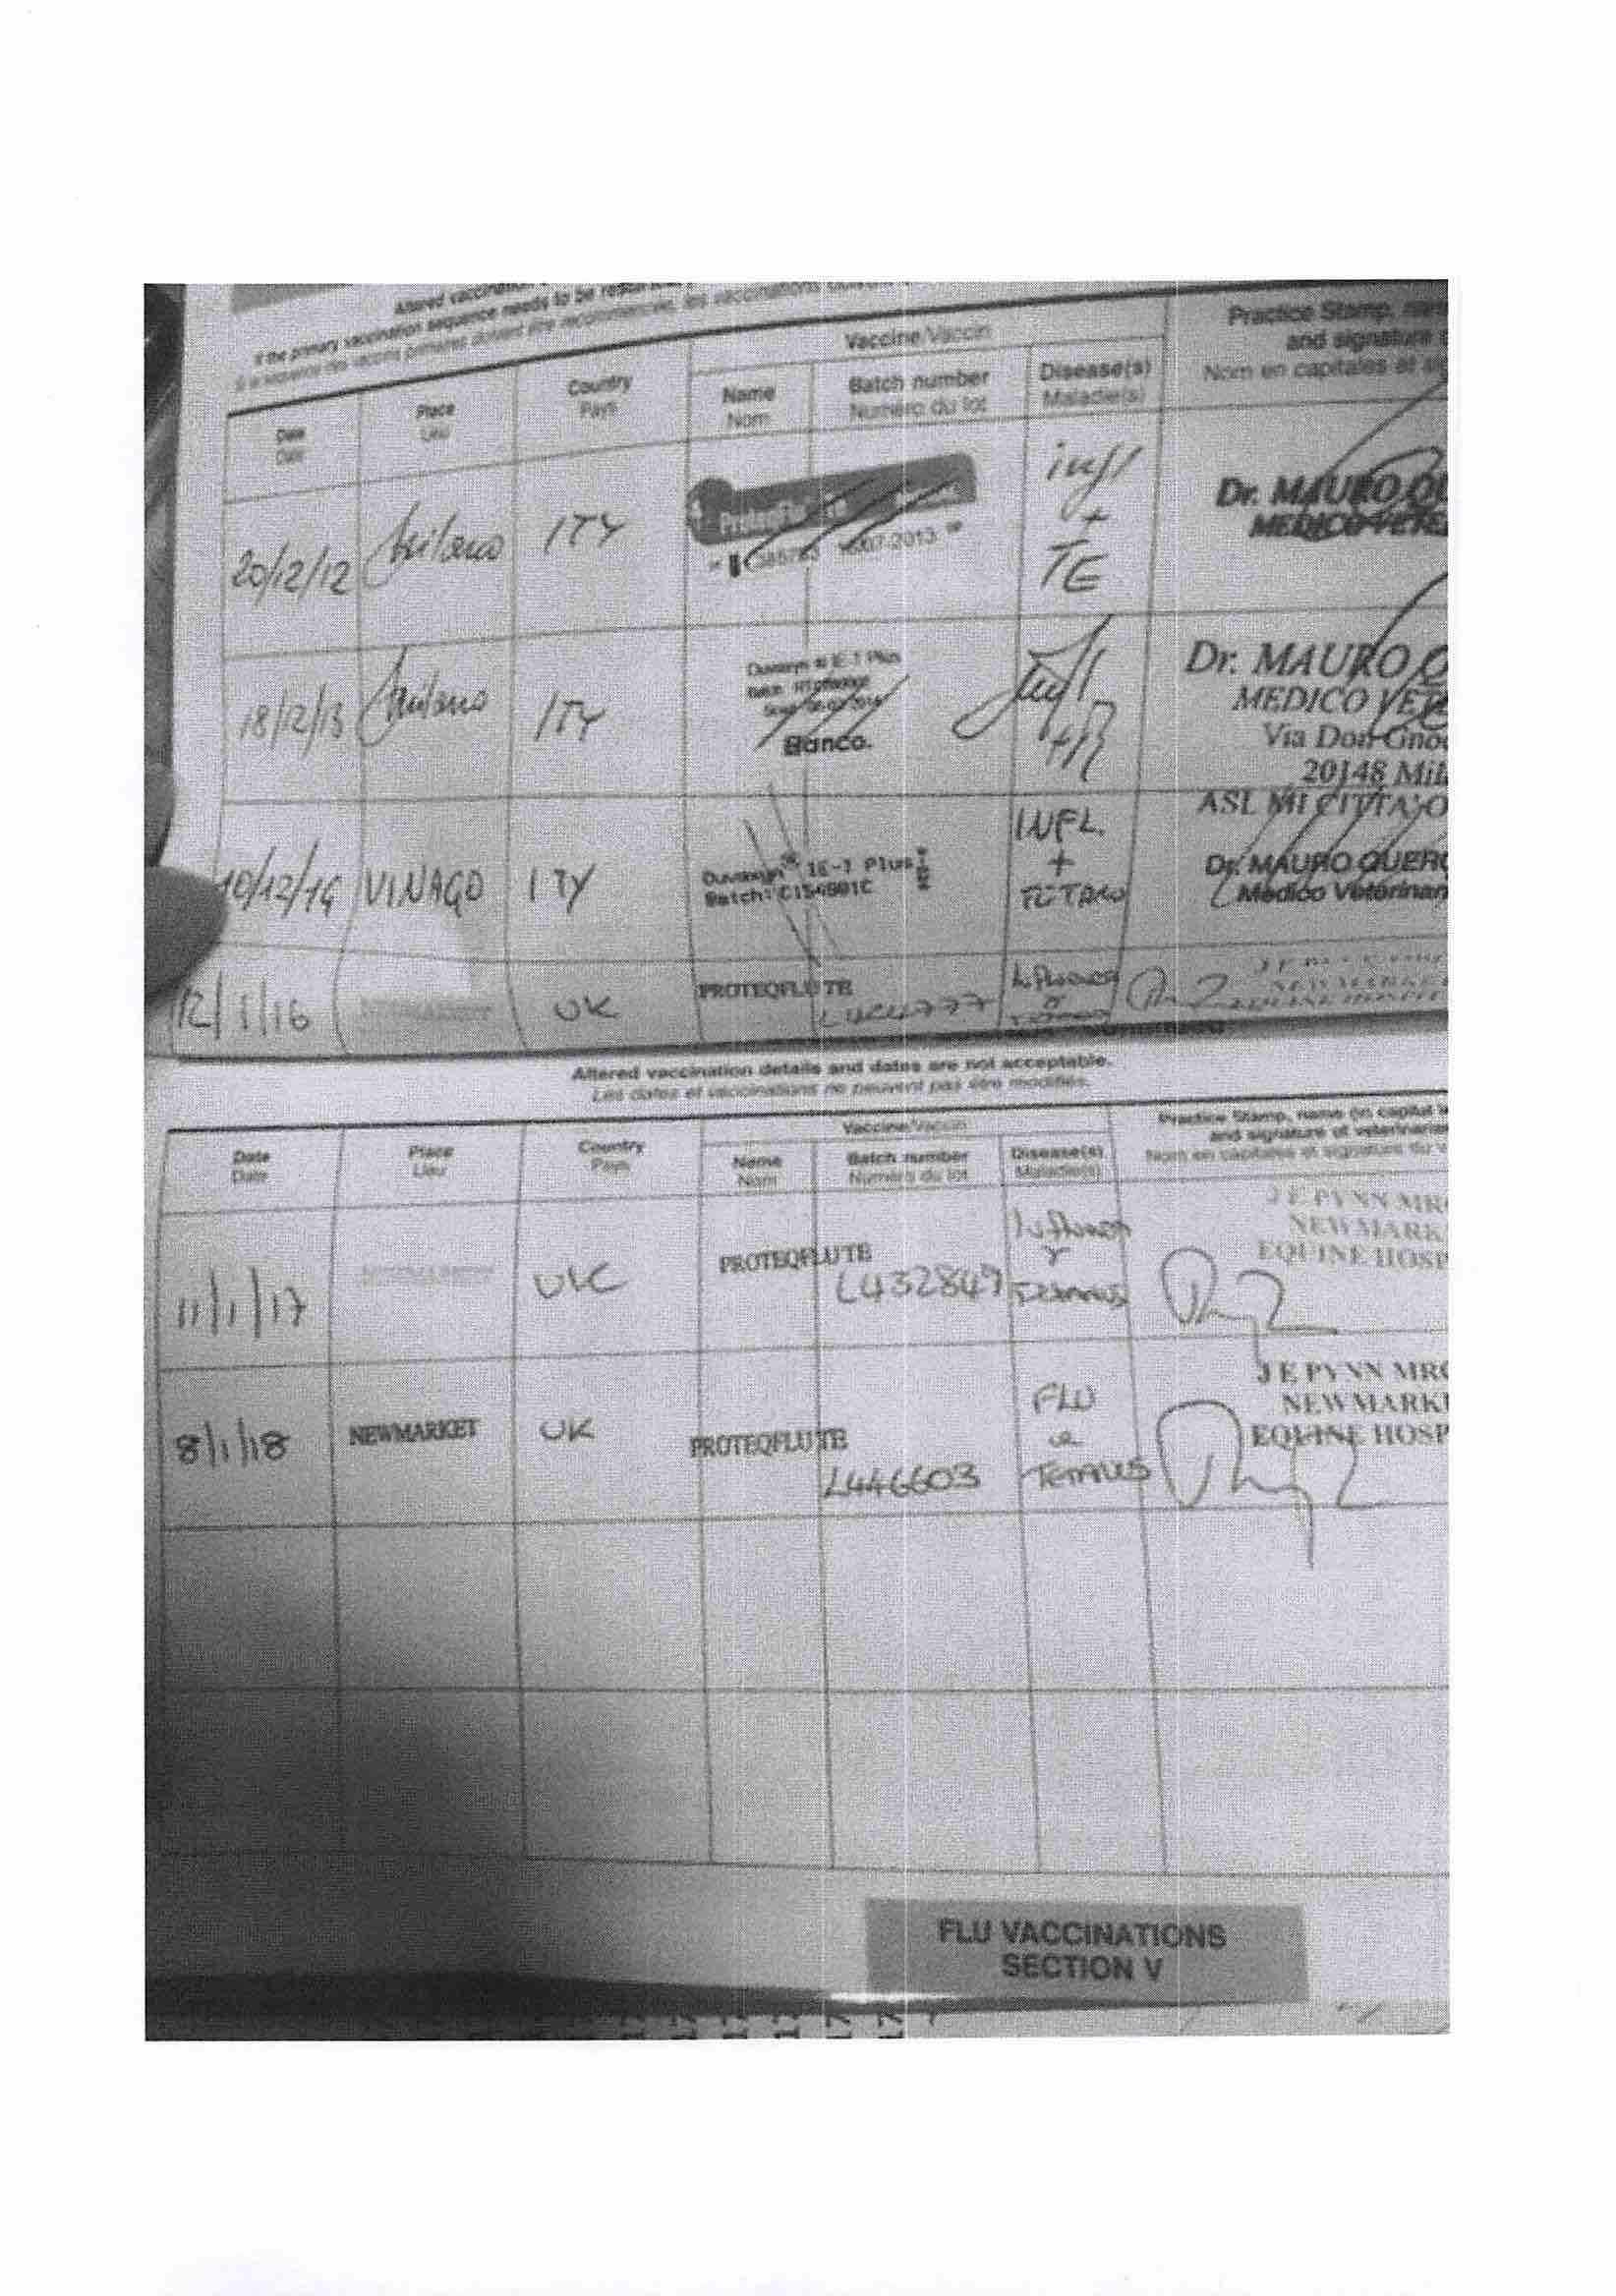 Altered vaccination
If the primary vaccination sequence needs to be
Vaccine/Vaccin
Practice Stamp,
and signature
Nom en capitales et
Date
Date
Place
Lieu
Country
Pays
Name
Nom
Batch number
Numéro du lot
Disease(s)
Maladie(s)
20/12/12 Milano ITY
07-2013
infl
+
TE
Dr. MAURO QU
MEDICO VETER
18/12/13 Milano ITY
Duvaxyn IE-T Plus
Banco.
Infl
Dr. MAURO Q
MEDICO VETE
Via Don Gnoc
20148 Mil
ASL MI CITTA' O
10/12/14 VINAGO ITY
Duvaxyn IE-T Plus
Batch:
INFL.
+
TETANO
Dr. MAURO QUERC
Medico Veterinar
12/1/16 NEWMARKET UK PROTEQFLU TE L424777
Influenza
Altered vaccination details and dates are not acceptable.
Les dates et vaccinations ne peuvent pas être modifiés.
Date
Date
Place
Lieu
Country
Pays
Vaccine/Vaccin
Name
Nom
Batch number
Numéro du lot
Disease(s)
Maladie(s)
Practice Stamp, name (in capital
and signature of veterinarian
Nom en capitales et signature du
11/1/17 NEWMARKET UK PROTEQFLU TE L432847
Influenza
&
TETANUS
J E PYNN MRC
NEWMARK
EQUINE HOSP
8/1/18 NEWMARKET UK PROTEQFLU TE L446603
FLU
&
TETANUS
J E PYNN MRC
NEWMARKE
EQUINE HOSP
FLU VACCINATIONS
SECTION V